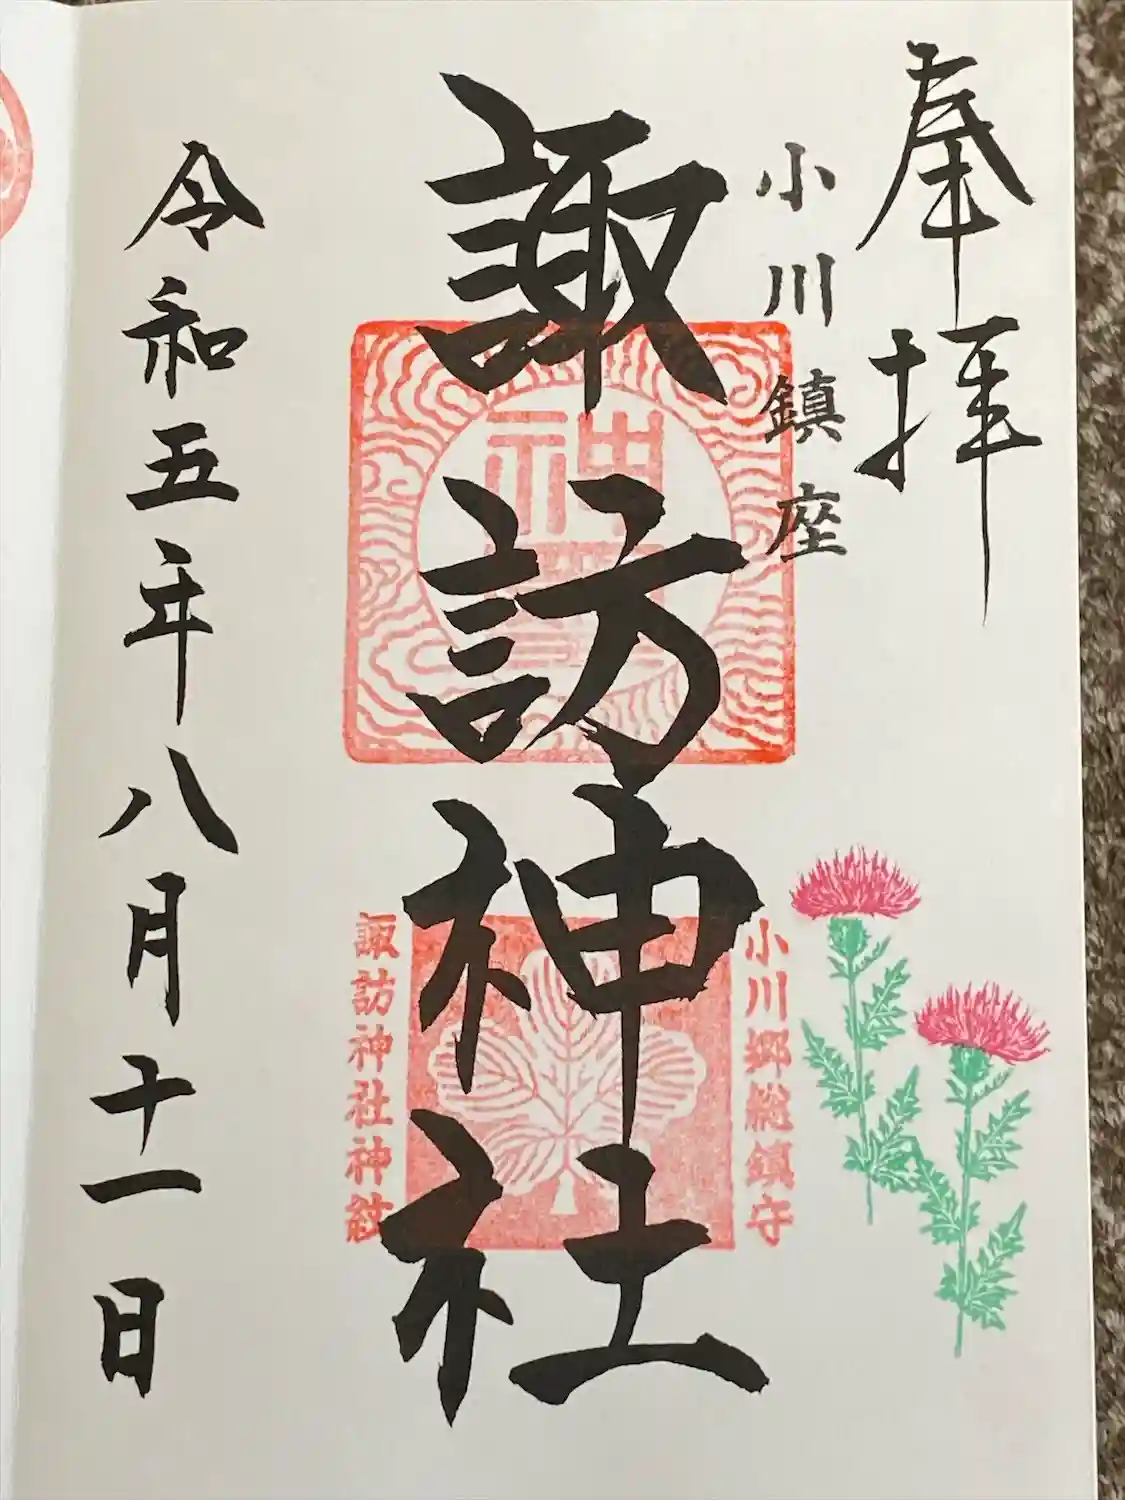 奉拝
小川鎮座
諏訪神社
小川郷総鎮守
諏訪神社神紋
令和五年八月十一日